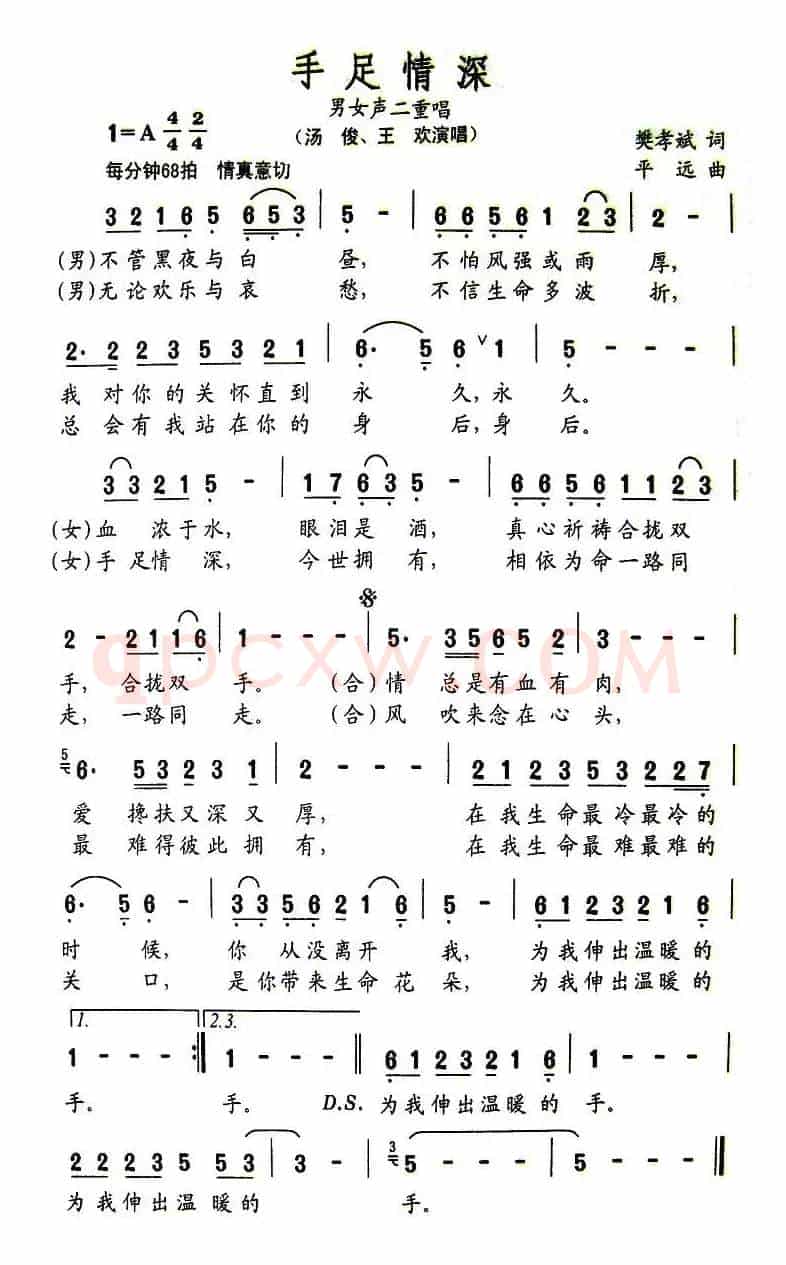 手足情深
男女声二重唱
1=A 4/4 2/4
(汤 俊、王 欢演唱)
樊孝斌 词
每分钟68拍 情真意切
平 远 曲
3 2 1 6 5 6 5 3 | 5 - | 6 6 5 6 1 2 3 | 2 - |
(男)不管黑夜与白 昼, 不怕风强或雨 厚,
(男)无论欢乐与哀 愁, 不信生命多波 折,
2· 2 2 3 5 3 2 1 | 6· 5 6 ∨ 1 | 5 - - - |
我 对你的关怀直到 永 久,永 久。
总 会有我站在你的 身 后,身 后。
3 3 2 1 5 - | 1 7 6 3 5 - | 6 6 5 6 1 1 2 3 |
(女)血 浓于水, 眼泪是 酒, 真心祈祷合拢双
(女)手 足情 深, 今世拥 有, 相依为命一路同
𝄋
2 - 2 1 1 6 | 1 - - - | 5· 3 5 6 5 2 | 3 - - - |
手, 合拢双 手。 (合)情 总是有血有 肉,
走, 一路同 走。 (合)风 吹来念在心 头,
5 6· 5 3 2 3 1 | 2 - - - | 2 1 2 3 5 3 2 2 7 |
爱 搀扶又深又 厚, 在我生命最冷最冷的
最 难得彼此拥 有, 在我生命最难最难的
6· 5 6 - | 3 3 5 5 6 2 1 6 | 5 - - - | 6 1 2 3 2 1 6 |
时 候, 你 从没离开 我, 为我伸出温暖的
关 口, 是你带来生命花 朵, 为我伸出温暖的
1. 2.3.
1 - - - :‖ 1 - - - | 6 1 2 3 2 1 6 | 1 - - - |
手。 手。 D.S. 为我伸出温暖的 手。
2 2 2 3 5 5 3 | 3 - | 3 5 - - - | 5 - - - ‖
为我伸出温 暖的 手。
qpcxw.COM